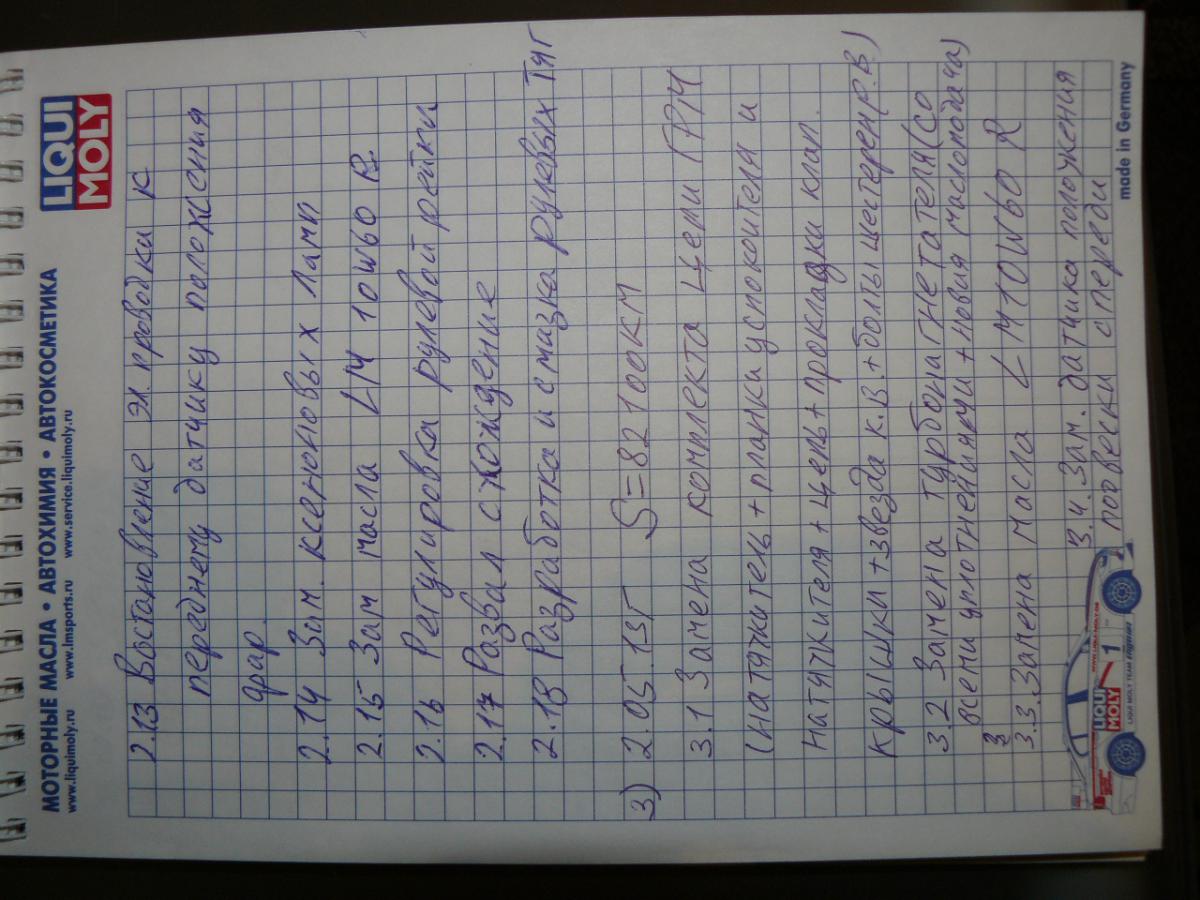 МОТОРНЫЕ МАСЛА • АВТОХИМИЯ • АВТОКОСМЕТИКА
www.liquimoly.ru www.lmsports.ru www.service.liquimoly.ru
LIQUI
MOLY
2.13 Востановление эл. проводки к
переднему датчику положения
фар.
2.14 Зам. ксеноновых Ламп
2.15 Зам масла LM 10W60 R.
2.16 Регулировка рулевой рейки
2.17 Развал схождение
2.18 Разработка и смазка рулевых Тяг
3) 2.05.15г S=82100км
3.1 Замена комплекта цепи ГРМ
(натяжитель + планка успокоителя и
натяжителя + цепь + прокладки клап.
крышки + звезда к.в. + болты шестерен р.в)
3.2 Замена турбонагнетателя (со
всеми уплотнениями + новая маслоподача)
3.3. Замена масла LM10W60 R
3.4. Зам. датчика положения
подвески спереди
LIQUI
MOLY
1
LIQUI MOLY TEAM
made in Germany